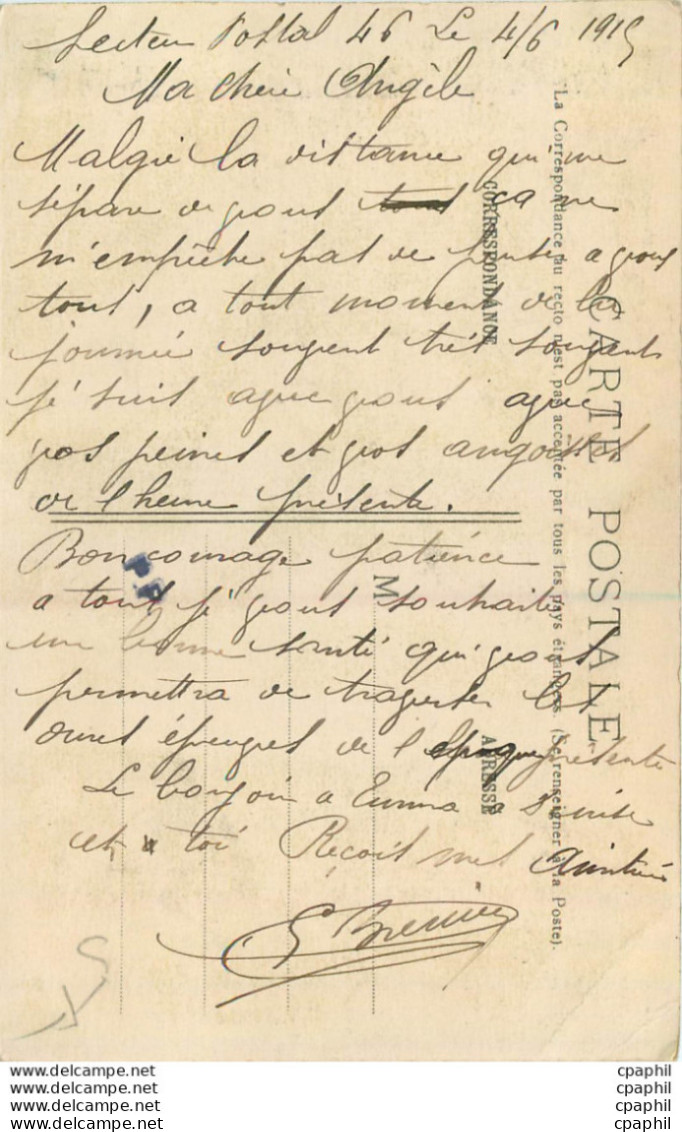 Secteur Postal 46 Le 4/6 1915
Ma chère Angèle
Malgré la distance qui me
sépare de vous ça ne
m'empêche pas de penser a vous
tous, a tout moment de la
journée souvent très souvent
je suis avec vous avec
vos peines et vos angoisses
de l heure présente.
Bon courage patience
a tous je vous souhaite
une bonne santé qui vous
permettra de traverser les
dures épreuves de l présente
Le bonjour a Emma a
et a toi Reçois mes Amitiés
CARTE POSTALE
"La Correspondance au recto n'est pas acceptée par tous les pays étrangers. (Se renseigner à la Poste).
CORRESPONDANCE
ADRESSE
M
www.delcampe.net
www.delcampe.net
www.delcampe.net
www.delcampe.net
cpaphil
cpaphil
cpaphil
cpaphil